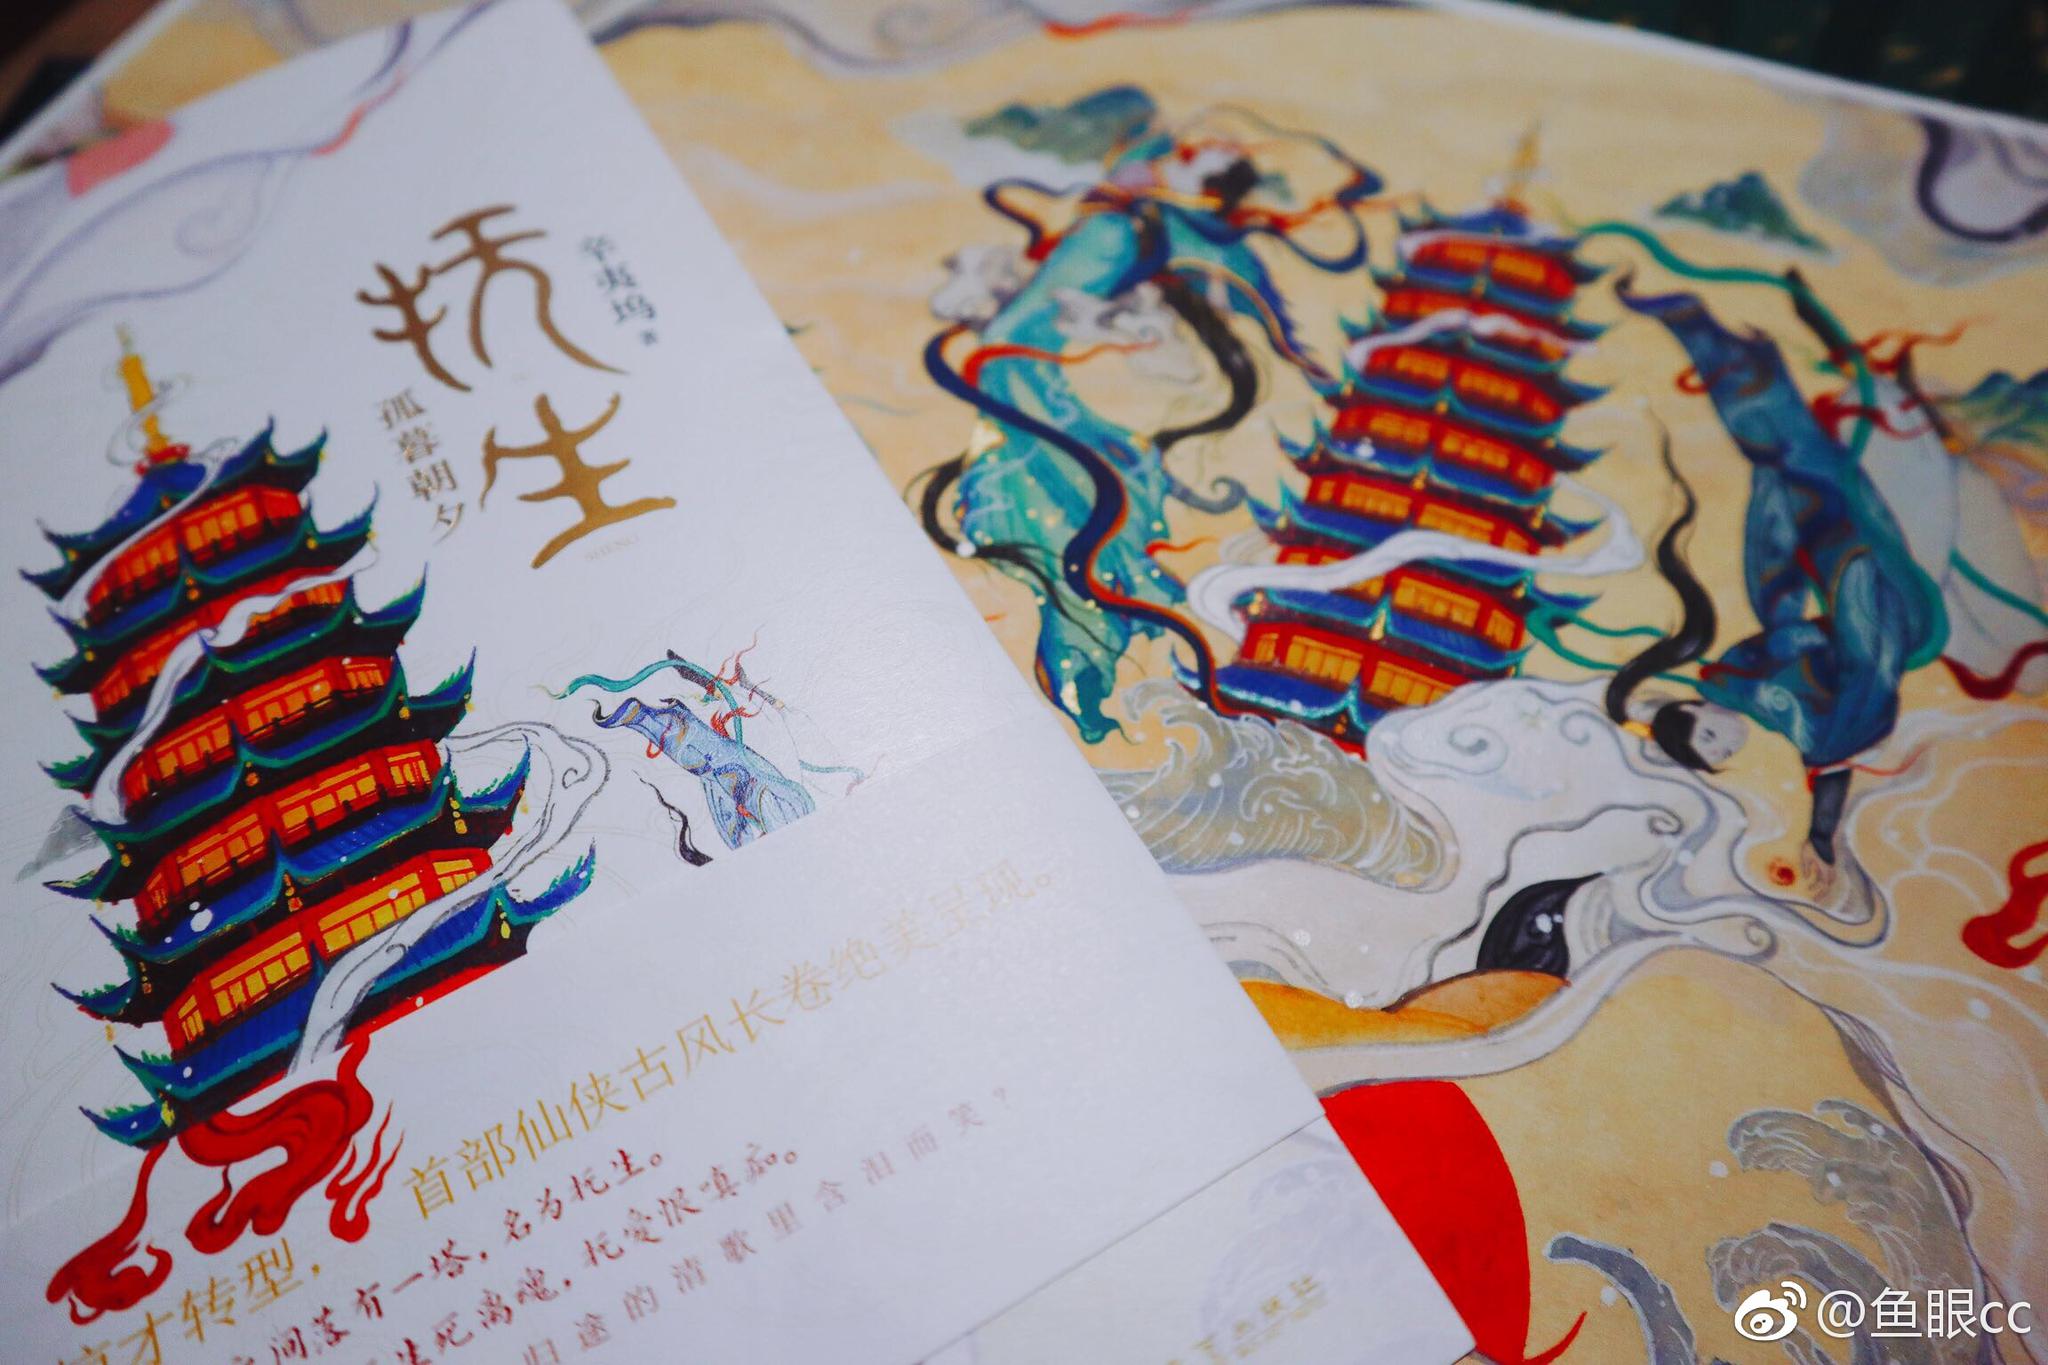 辛夷坞 著
抚生
SHENG
孤暮朝夕
才转型，
首部仙侠古风长卷绝美呈现。
间落有一塔，名为抚生。
生死离魂，抚爱恨嗔痴。
归途的清歌里含泪而笑？
@鱼眼cc